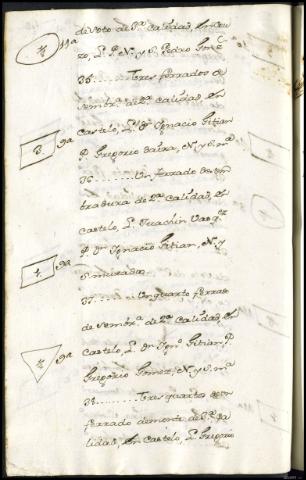 de soto de 2ª calidad, en Cou
so, L. P. N. y S. Pedro Gomẽ
35........Tres ferrados de
sembrª de 2ª calidad, en
3 9ª
Castelo, L. Dⁿ Ignacio Pitian
P. Gregorio N. y S.
36........Un ferrado de
bradura de 2ª calidad, en
Castelo, L. Juachin Vazqᶻ
P. Dⁿ Ignacio Pitian, N. y
1 9ª
S. muradas.
37........Un quarto ferrado
de sembrª de 2ª Calidad, en
9ª
Castelo, L. Dⁿ Ignº Pitian, P.
Gregorio Gomez, N. y S.
38........Tres quartos de un
ferrado de monte de 3ª ca
lidad, en Castelo, L. Gregorio